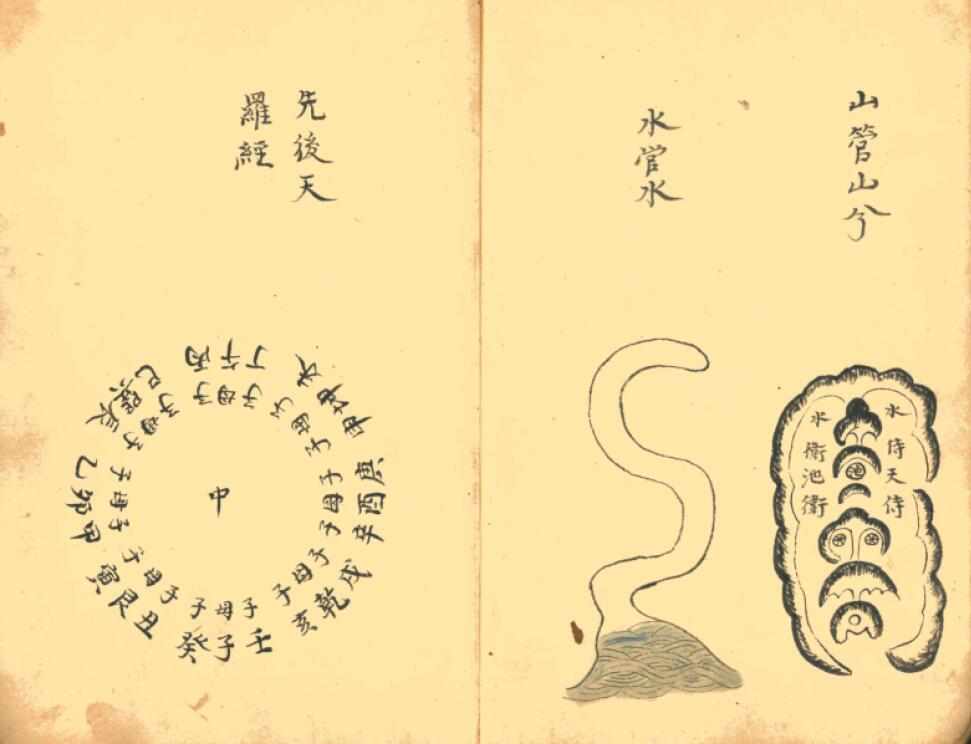 山管山兮
水
侍天侍
池
水
衛池衛
水官水
先後天
羅經
丙午丁
未坤申
庚酉辛
戌乾亥
壬子癸
丑艮寅
甲卯乙
辰巽巳
子母子
子母子
子母子
子母子
子母子
子母子
子母子
子母子
中